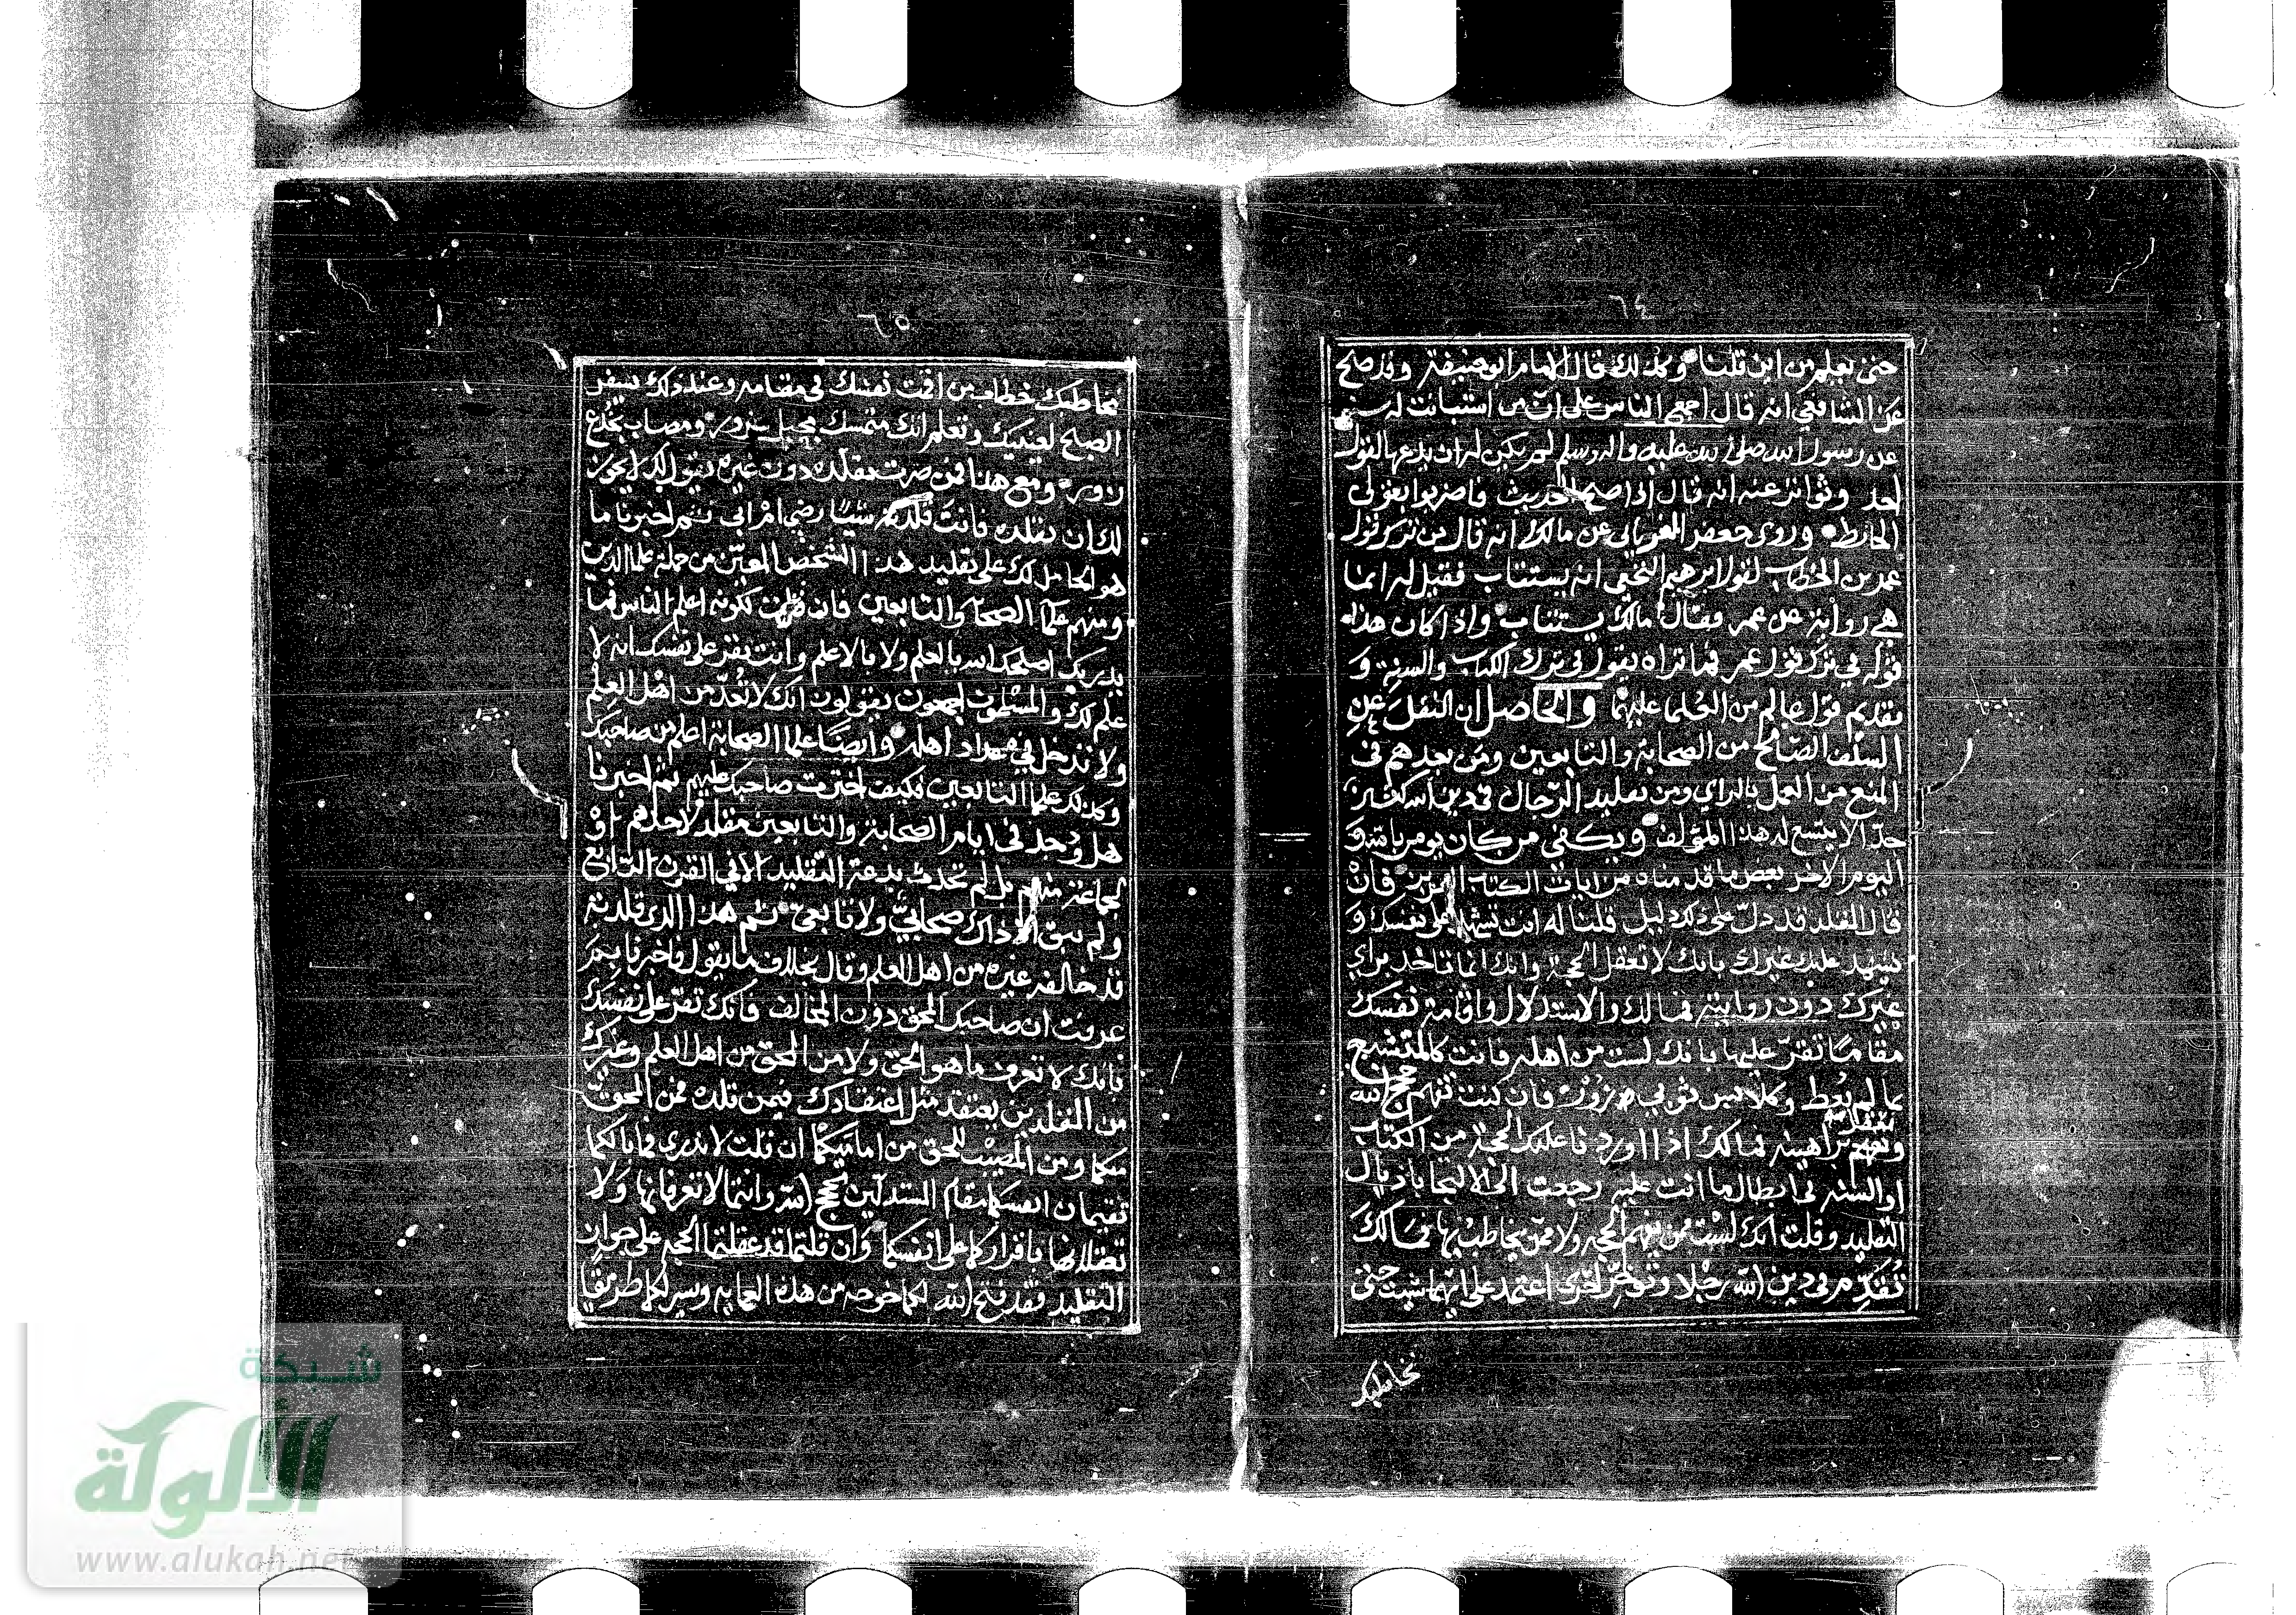 ٦٤
حتى يعلم من اين قلنا وكذلك قال الامام ابو حنيفة وقد صح
عن الشافعي انه قال اجمع الناس على ان من استبانت له سنة
عن رسول الله صلى الله عليه واله وسلم لم يكن له ان يدعها لقول
احد وتواتر عنه انه قال اذا صح الحديث فاضربوا بقولي
الحائط وروى جعفر الفريابي عن مالك انه قال من ترك قول
عمر بن الخطاب لقول ابرهيم النخعي انه يستتاب فقيل له انما
هي رواية عن عمر فقال مالك يستتاب واذا كان هذا
قوله في ترك قول عمر فما تراه يقول في ترك الكتاب والسنة و
تقديم قول عالم من العلما عليهما والحاصل ان النقل عن
السلف الصالح من الصحابة والتابعين ومن بعدهم في
المنع من العمل بالراي ومن تقليد الرجال في دين الله كثير
جدا لا يتسع له هذا المؤلف ويكفي من كان يومن بالله و
اليوم الاخر بعض ما قدمناه من ايات الكتاب العزيز فان
قال المقلد قد دل على ذلك دليل قلنا له انت تشهد على نفسك و
يشهد عليك غيرك بانك لا تعقل الحجة وانك انما تاخذ براي
غيرك دون روايته فمالك والاستدلال واقامة نفسك
مقاما تقر عليها بانك لست من اهله فانت كالمتشبع
بما لم يعط وكلابس ثوبي زور فان كنت تفهم حجج الله
وتفهم براهينه فما لك اذا اوردنا عليك الحجة من الكتاب
او السنة في ابطال ما انت عليه رجعت الى الالتجا باذيال
التقليد وقلت انك لست ممن يفهم الحجة ولا ممن يخاطب بها فمالك
تقدم في دين الله رجلا وتوخر اخرى اعتمد على ايهما شيت حتى
نخاطبك
٦٥
نخاطبك خطاب من اقمت نفسك في مقامه وعند ذلك يسفر
الصبح لعينيك وتعلم انك متمسك بحبل غرور ومصاب بخدع
زور ومع هذا فمن صرت تقلده دون غيره يقول لك لا يجوز
لك ان تقلده فانت قلدته شيت رضي ام ابى ثم اخبرنا ما
هو الحامل لك على تقليد هذا الشخص المعين من جملة علما الدين
ومنهم علما الصحابة والتابعين فان زعمت لكونه اعلم الناس فما
يدريك اصلحك الله بالعلم ولا بالاعلم وانت تقر على نفسك انه لا
علم لك والمسلمون اجمعون يقولون انك لا تعد من اهل العلم
ولا تدخل في عداد اهله وايضا علما الصحابة اعلم من صاحبك
وكذلك علما التابعين فكيف اخترت صاحبك عليهم ثم اخبرنا
هل وجد في ايام الصحابة والتابعين مقلد لاحدهم او
لجماعة منهم بل لم تحدث بدعة التقليد الا في القرن الرابع
ولم يبق اذ ذاك صحابي ولا تابعي ثم هذا الذي قلدته
قد خالفه غيره من اهل العلم وقال بخلاف ما يقول فاخبرنا بم
عرفت ان صاحبك المحق دون المخالف فانك تقر على نفسك
بانك لا تعرف ما هو الحق ولا من المحق من اهل العلم وغيرك
من المقلدين يعتقد مثل اعتقادك فيمن قلده فمن المحق
منكما ومن المصيب للحق من اماميكما ان قلت لا ندري فما بالكما
تقيمان انفسكما مقام المستدلين بحجج الله وانتما لا تعرفانها ولا
تعقلانها باقراركما على انفسكما وان قلتما قد عقلنا الحجة على جواز
التقليد فقد فتح الله لكما خوخه من هذه العمايه ويسر لكما طريقا
شبكة
الألوكة
www.alukah.net